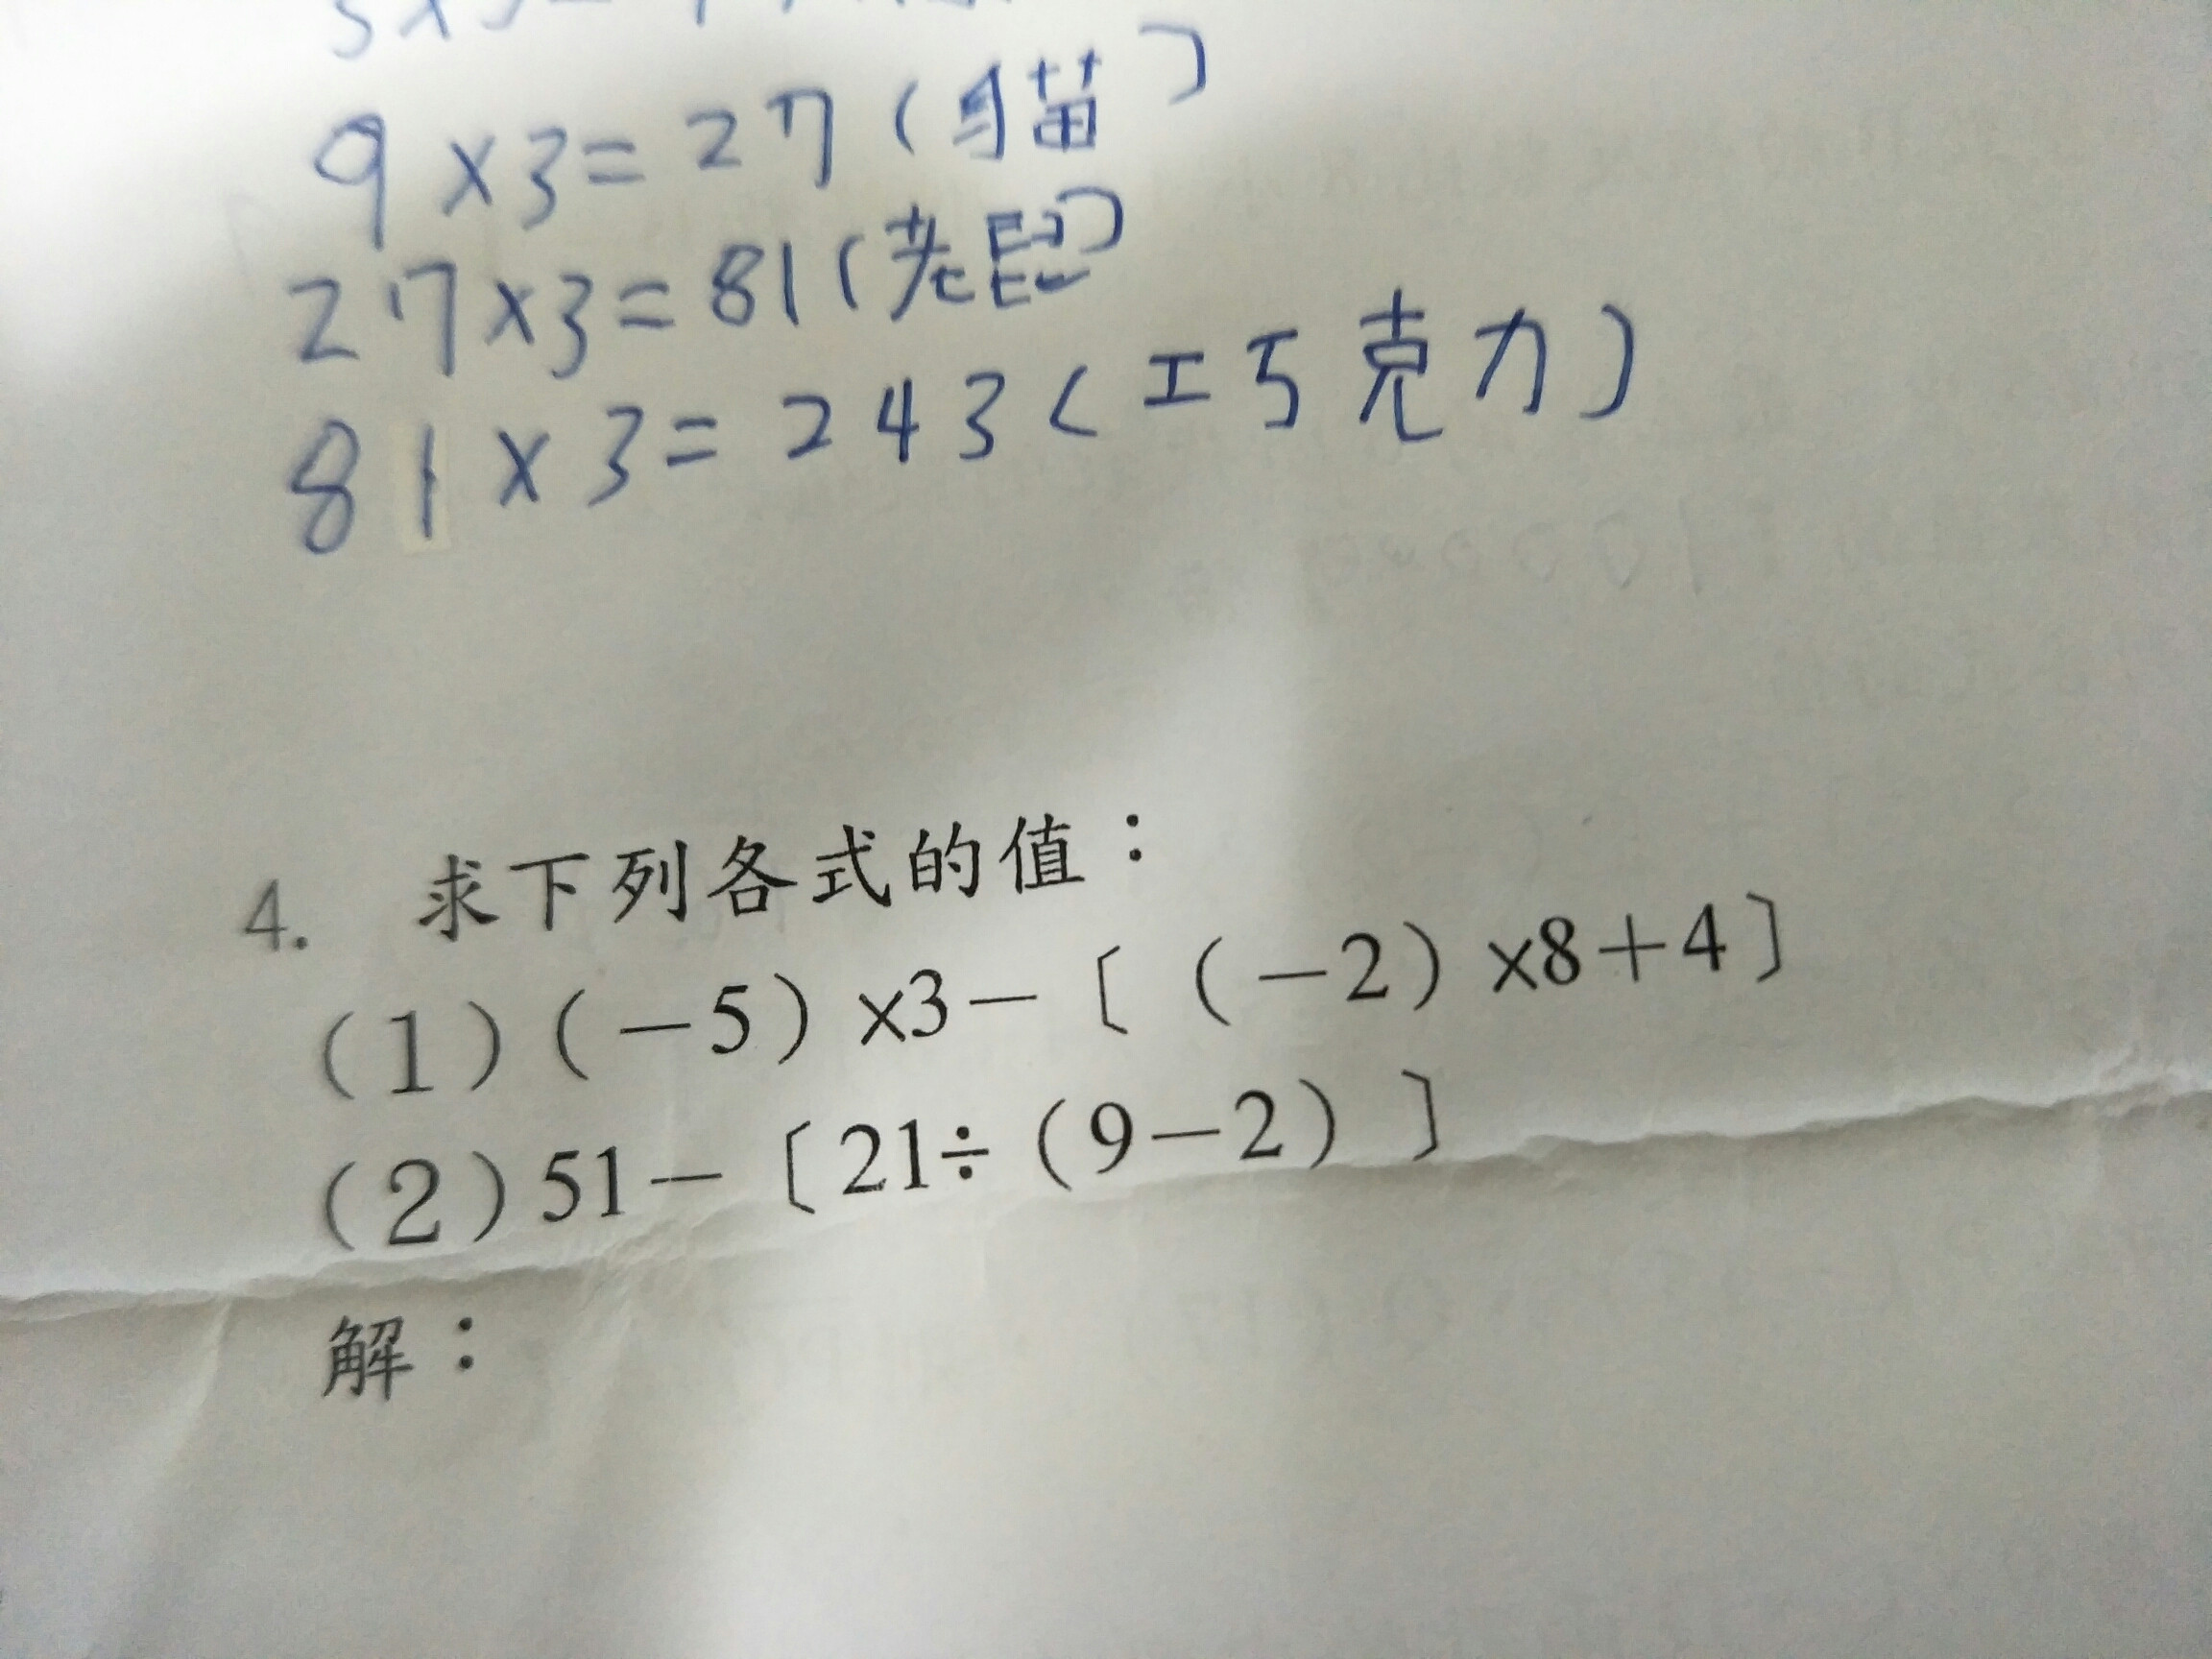 9×3=27(貓)
27×3=81(老鼠)
81×3=243(巧克力)
4. 求下列各式的值：
(1)(－5)×3－〔(－2)×8＋4〕
(2)51－〔21÷(9－2)〕
解：